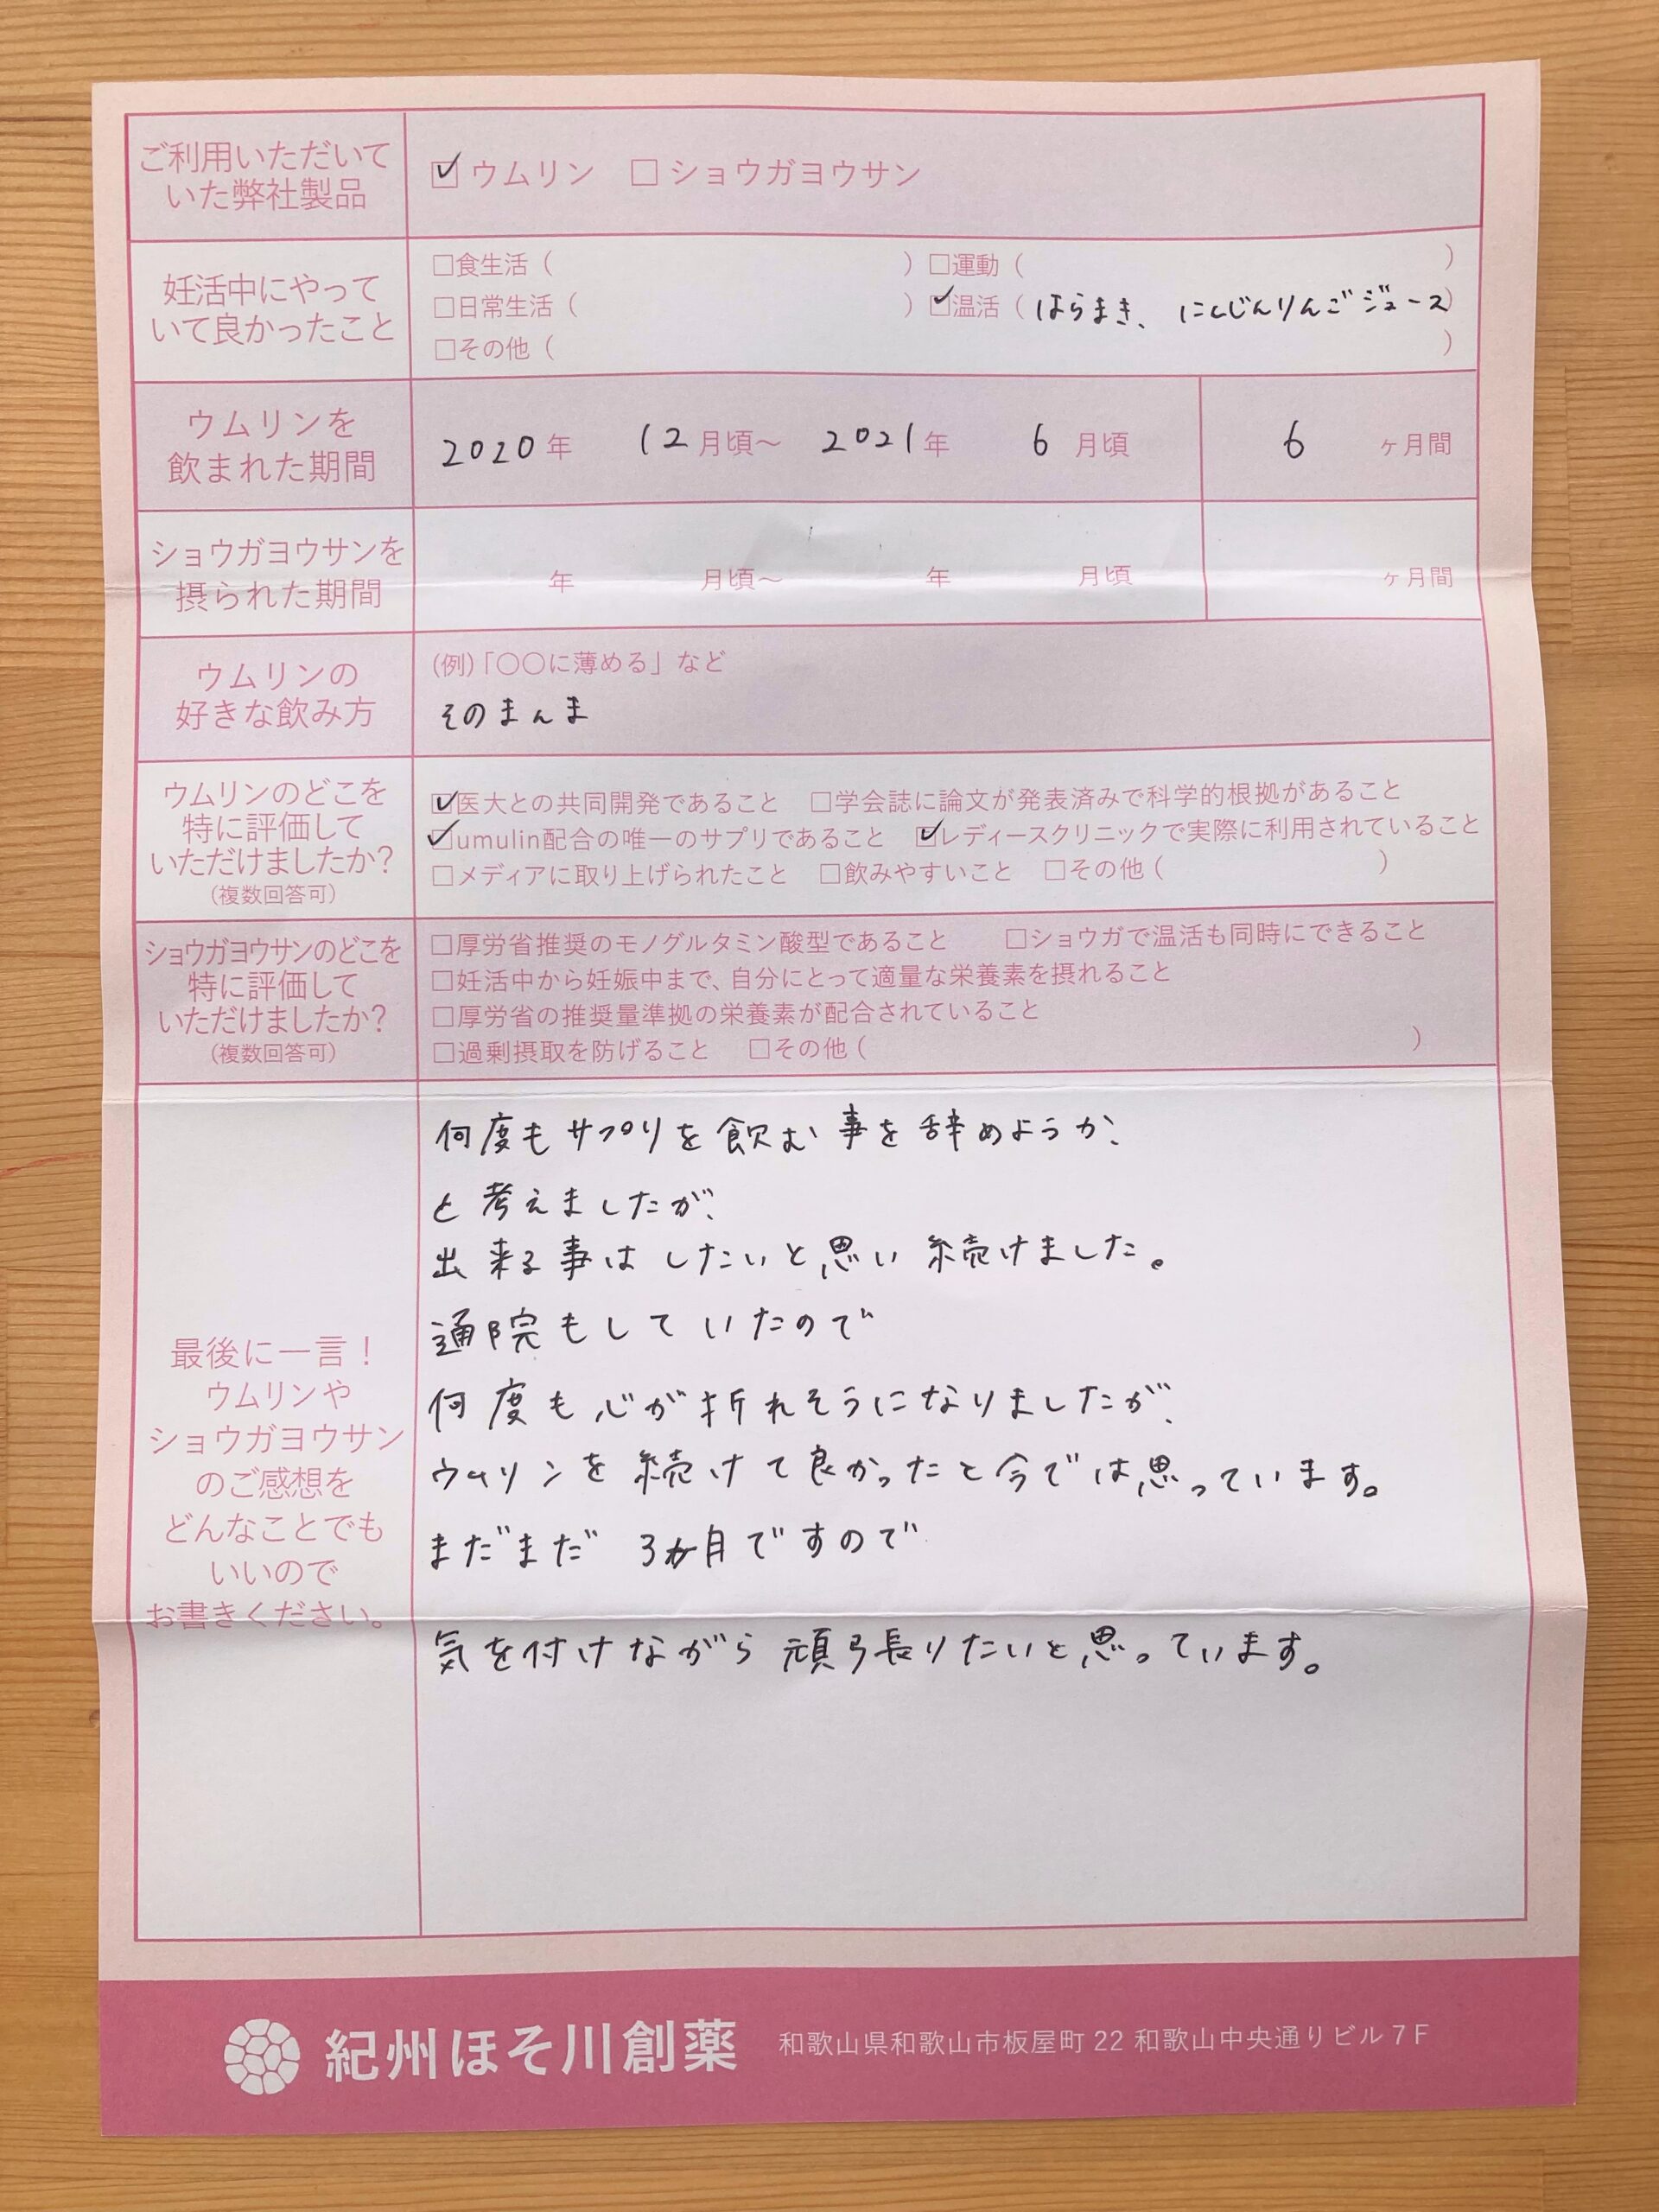 ご利用いただいて
いた弊社製品
☑ウムリン □ショウガヨウサン
妊活中にやって
いて良かったこと
□食生活（ ）□運動（ ）
□日常生活（ ）☑温活（はらまき、にんじんりんごジュース）
□その他（ ）
ウムリンを
飲まれた期間
2020年 12月頃～ 2021年 6月頃 6ヶ月間
ショウガヨウサンを
摂られた期間
年 月頃～ 年 月頃 ヶ月間
ウムリンの
好きな飲み方
(例)「〇〇に薄める」など
そのまんま
ウムリンのどこを
特に評価して
いただけましたか?
(複数回答可)
☑医大との共同開発であること □学会誌に論文が発表済みで科学的根拠があること
☑umulin配合の唯一のサプリであること ☑レディースクリニックで実際に利用されていること
□メディアに取り上げられたこと □飲みやすいこと □その他（ ）
ショウガヨウサンのどこを
特に評価して
いただけましたか?
(複数回答可)
□厚労省推奨のモノグルタミン酸型であること □ショウガで温活も同時にできること
□妊活中から妊娠中まで、自分にとって適量な栄養素を摂れること
□厚労省の推奨量準拠の栄養素が配合されていること
□過剰摂取を防げること □その他（ ）
最後に一言！
ウムリンや
ショウガヨウサン
のご感想を
どんなことでも
いいので
お書きください。
何度もサプリを飲む事を辞めようか、
と考えましたが、
出来る事はしたいと思い続けました。
通院もしていたので
何度も心が折れそうになりましたが、
ウムリンを続けて良かったと今では思っています。
まだまだ 3か月ですので
気を付けながら頑張りたいと思っています。
紀州ほそ川創薬 和歌山県和歌山市板屋町 22 和歌山中央通りビル 7 F